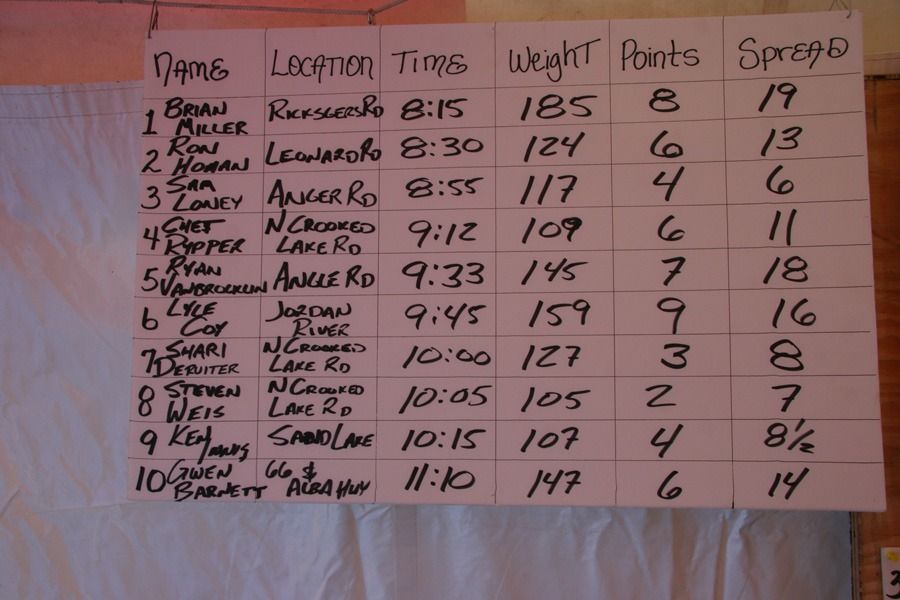 NAME LOCATION TIME WEIGHT Points SPREAD
1 BRIAN MILLER RICKSGERS RD 8:15 185 8 19
2 RON HOMAN LEONARD RD 8:30 124 6 13
3 SAM LONEY ANGER RD 8:55 117 4 6
4 CHET RYPPER N CROOKED LAKE RD 9:12 109 6 11
5 RYAN VANBROCKLIN ANGLE RD 9:33 145 7 18
6 LYLE COY JORDAN RIVER 9:45 159 9 16
7 SHARI DERUITER N CROOKED LAKE RD 10:00 127 3 8
8 STEVEN WEIS N CROOKED LAKE RD 10:05 105 2 7
9 KEN SAND LAKE 10:15 107 4 8 1/2
10 GWEN BARNETT 66 & ALBA HWY 11:10 147 6 14